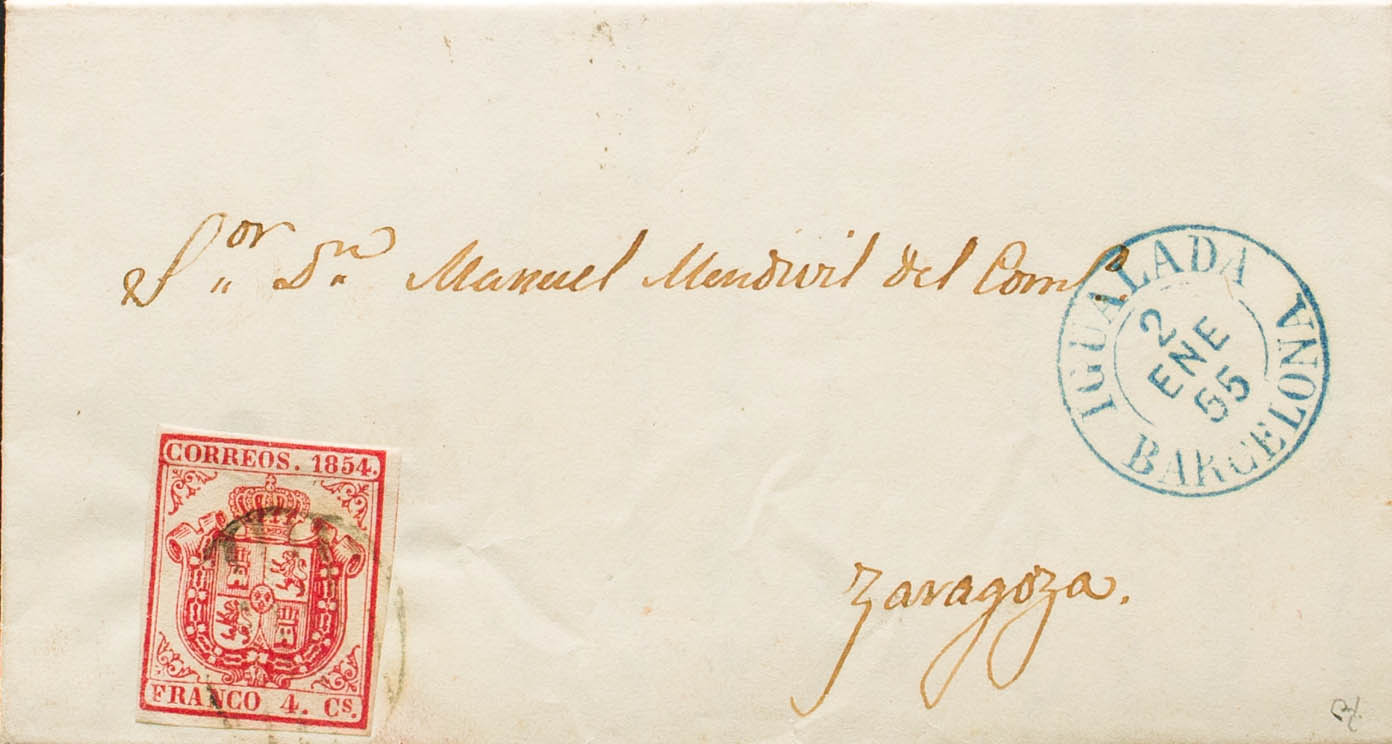 Sor. Dn. Manuel Mendivil del Como.
IGUALADA
2
ENE
55
BARCELONA
CORREOS. 1854.
FRANCO 4. Cs.
Zaragoza.